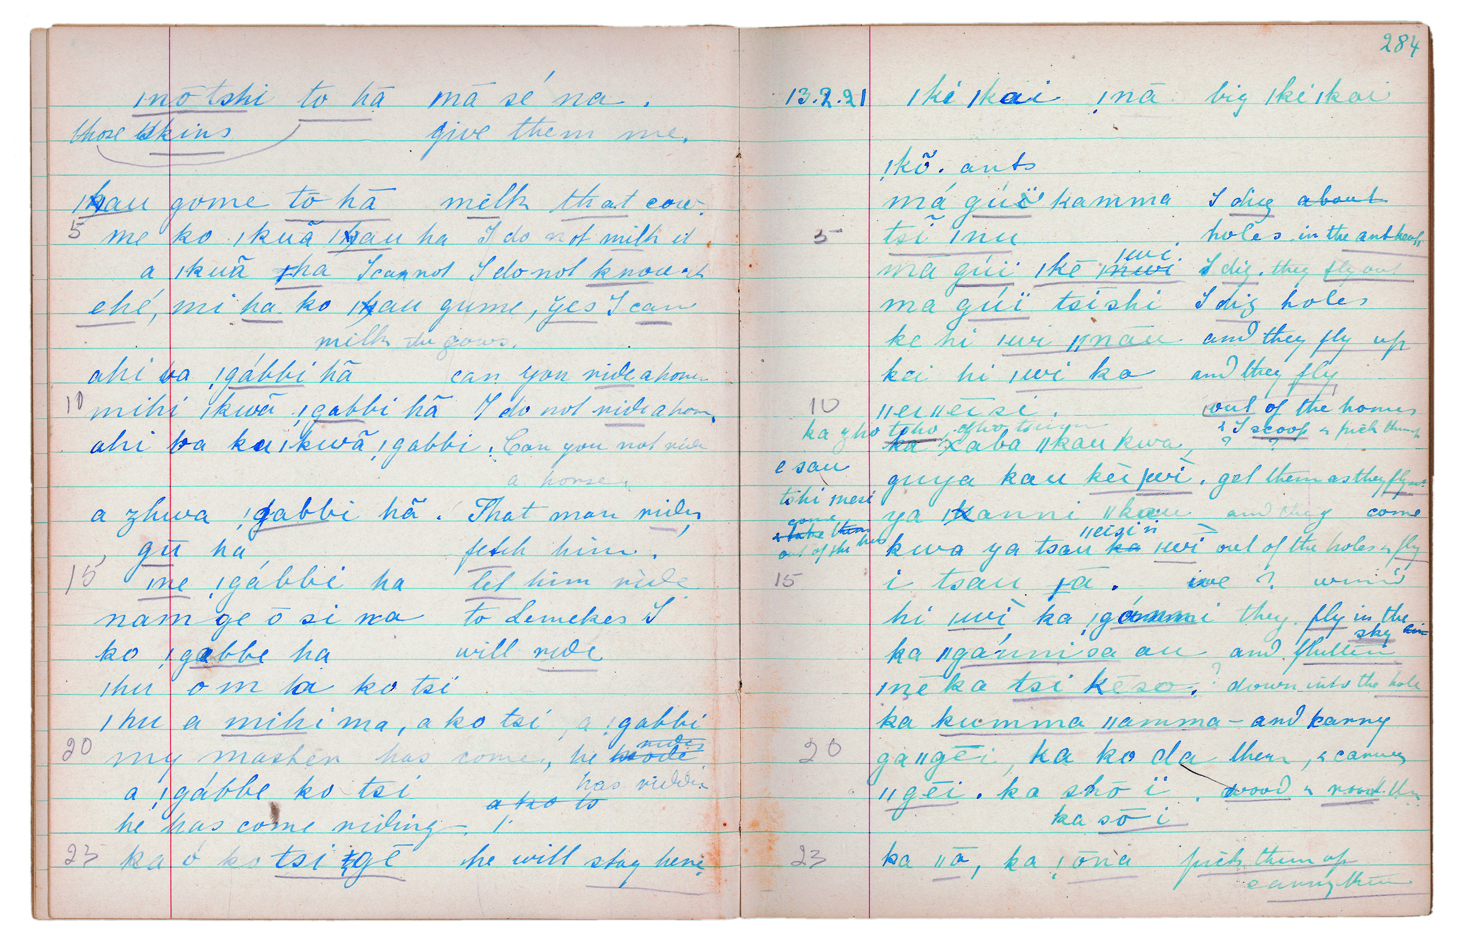 ǀnō tshi to hā mā sé na.
those skins give them me.
ǀkau gome tō hā milk that cow.
5 me ko ǀkuā ǀkau ha I do not milk it
a ǀkuā ha I cannot I do not know it
ehé, mi ha ko ǀkau gume, yes I can
milk the cows.
ahi ba ǃgábbi hā can you ride a horse
10 mihi ǀkwā ǃgabbi hā I do not ride a horse
ahi ba ka ǀkwā ǃgabbi. Can you not ride
a horse.
a zhwa ǃgabbi hā. That man rides,
gū ha fetch him.
15 me ǃgábbi ha let him ride
nam ge ō si na to Lemekes I
ko ǃgabbe ha will ride
ǀhu om ha ko tsi
ǀhu a mihi ma, a ko tsi a ǃgabbi
20 my master has come, he rides
has ridden
a ǃgábbe ko tsi a ko to
he has come riding. ǀ
23 ka ó ko tsi gē he will stay here
284
13.2.21 ǀkéǀkai ǃnā big ǀkéǀkai
ǃkõ. ants
má gúï kamma I dig about
5 tsĩ ǀnu holes in the antheap
ǀwi.
ma gúï ǀkē ǀnwi I dig. they fly out
ma gúï tsishi I dig holes
ke hi ǀwi ǁnāu and they fly up
kai hi ǀwi ka and they fly
10 ǁeiǁeisi. out of the homes
ka zho tsho & I scoop & pick them up
ka ǁkau kwa, ? ?
e sau guya kau kēi ǀwì. get them as they fly out
tshi
ya kanni ǁkau and they come
ǁeigi
out of the
kwa ya tsau ka ǀwì out of the holes & fly
15 i tsau ā. we ? wind
hi ǀwì ka ǃgámmi they fly in the
sky air
ka ǁgánnisa au and flutter
ǀnē ka tsi kēso. ? down into the hole
ka kumma ǁamma - and carry
20 gaǁgēi, ka ko da them, & carry
ǁgēi. ka shō ï. wood & roast them
ka sō i
23 ka ǁā, ka ǃōna pick them up
carry them